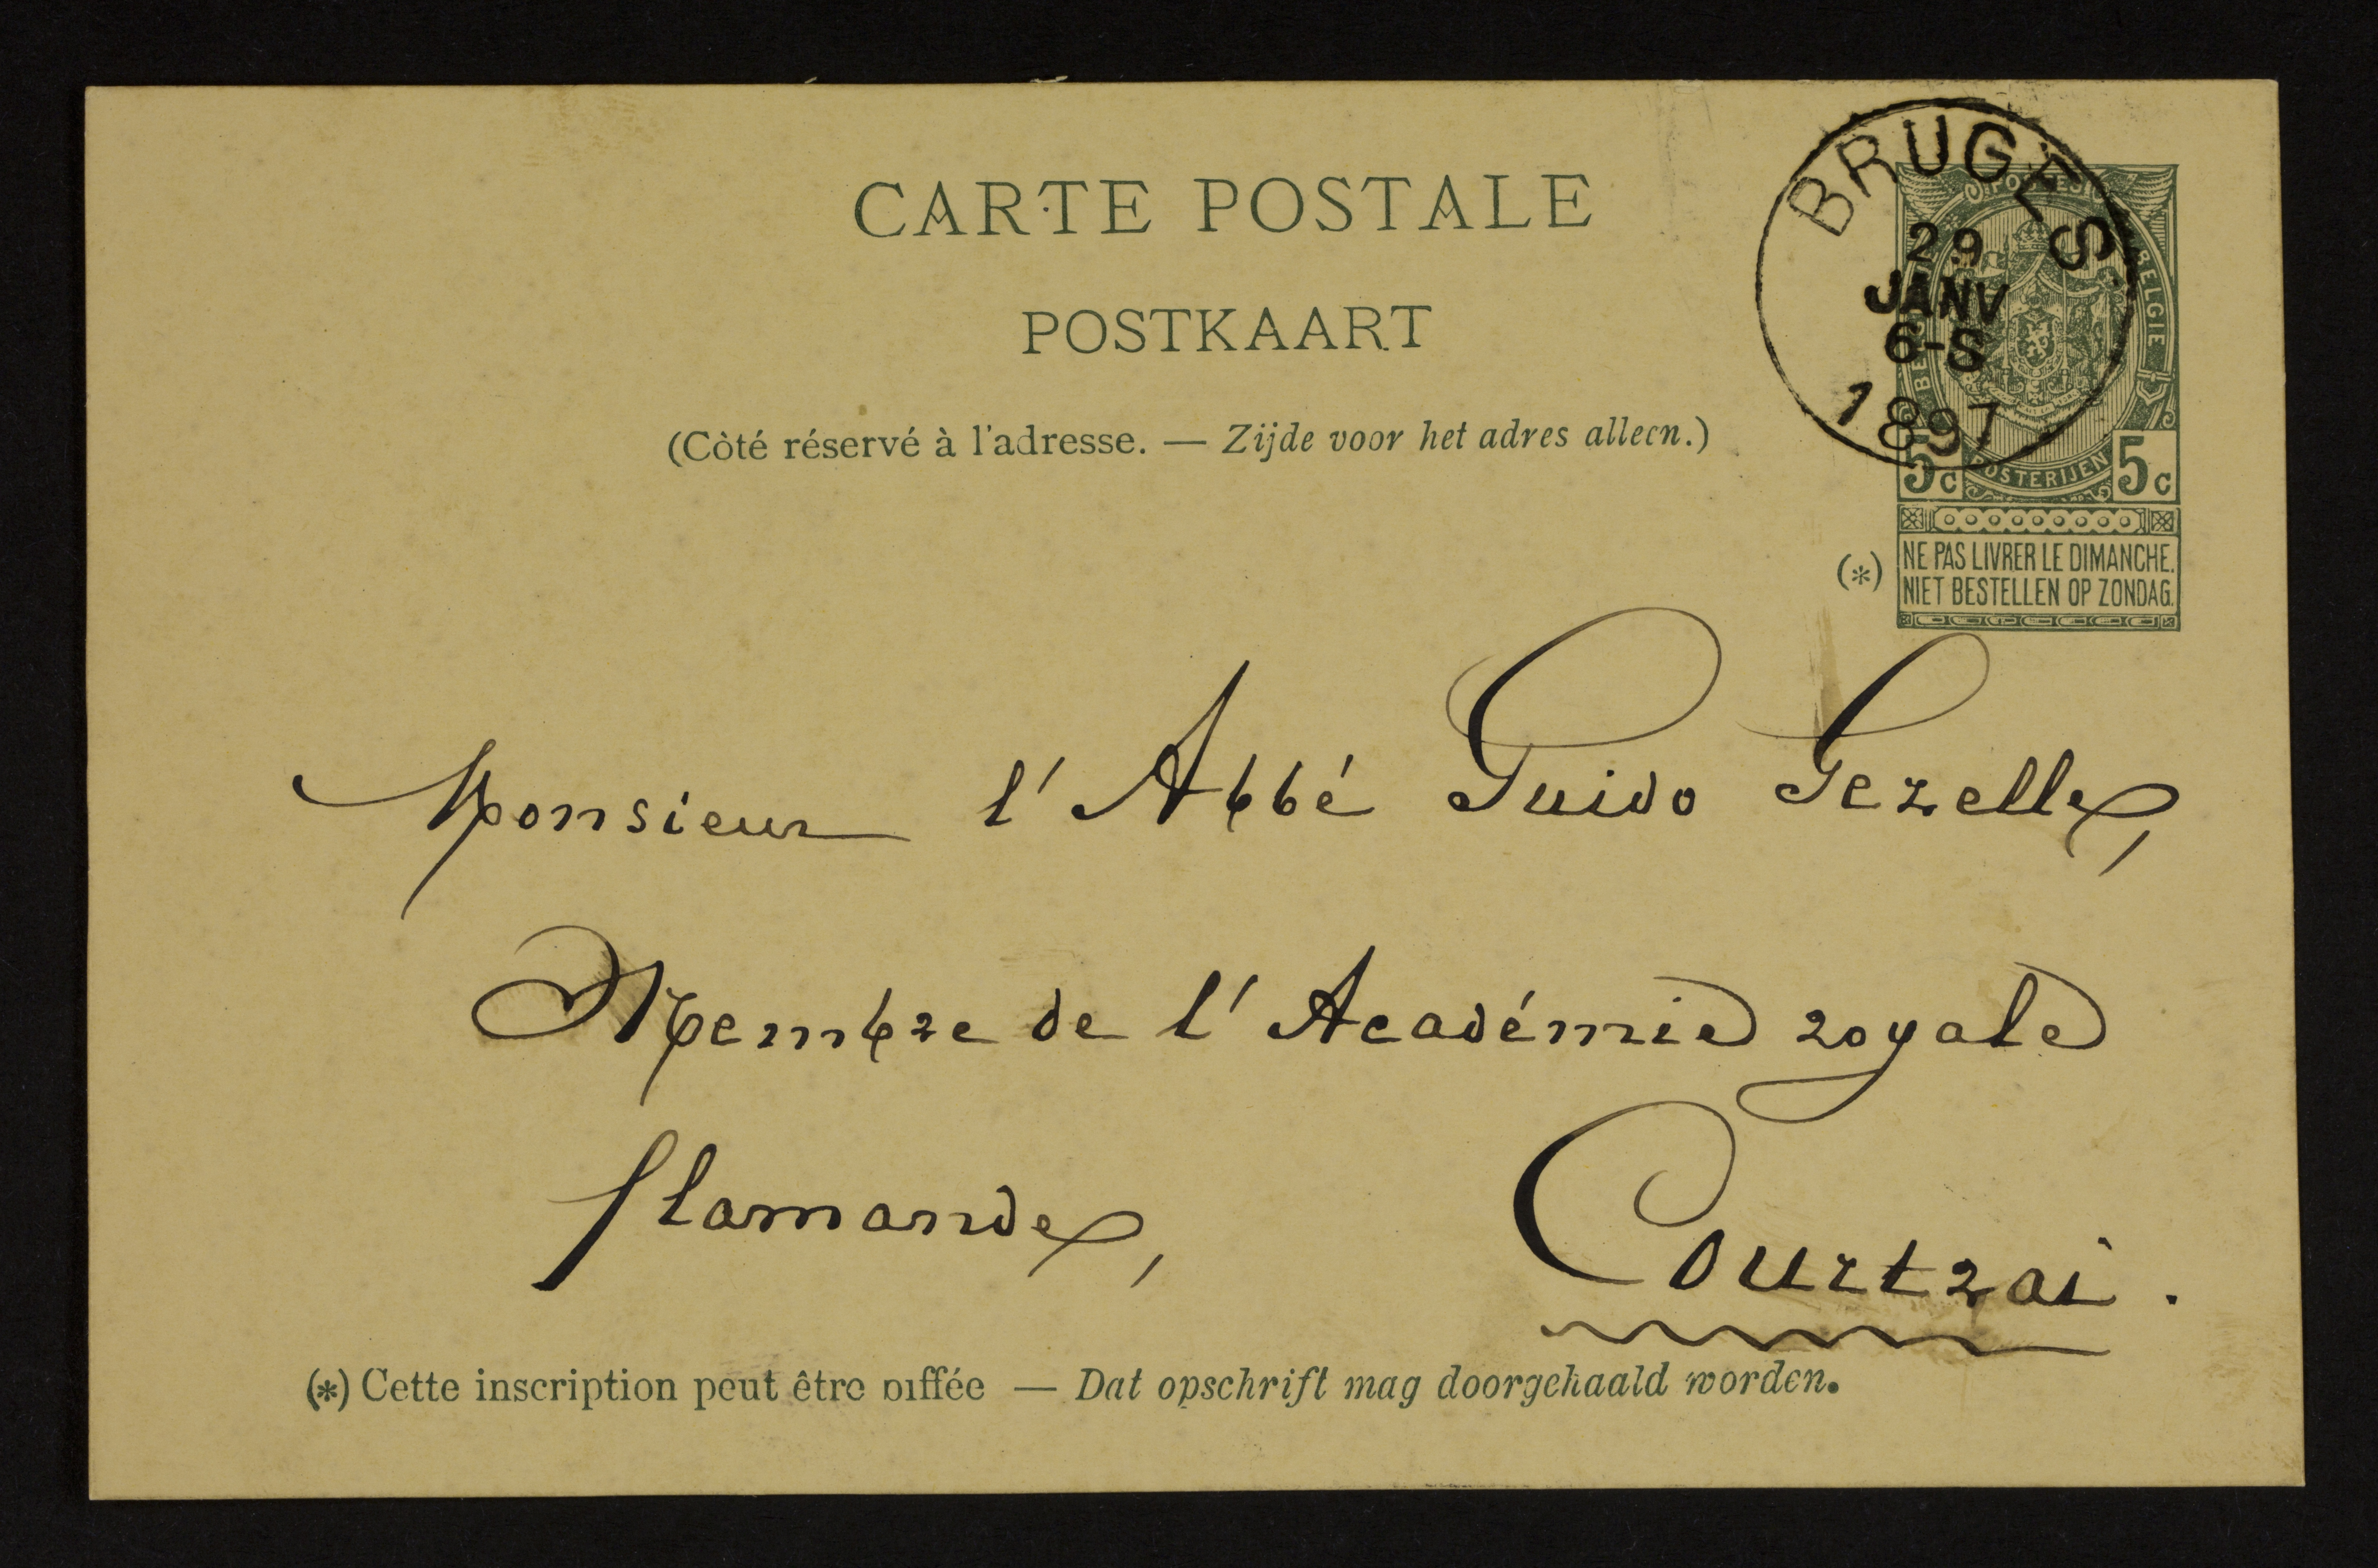 CARTE POSTALE
POSTKAART
(Côté réservé à l'adresse. — Zijde voor het adres alleen.)
BRUGES
29
JANV
6-S
1897
POSTES
BELGIE
POSTERIJEN
5c 5c
(*) NE PAS LIVRER LE DIMANCHE.
NIET BESTELLEN OP ZONDAG.
Monsieur l'Abbé Guido Gezelle,
Membre de l'Académie royale
flamande, Courtrai.
(*) Cette inscription peut être biffée — Dat opschrift mag doorgehaald worden.